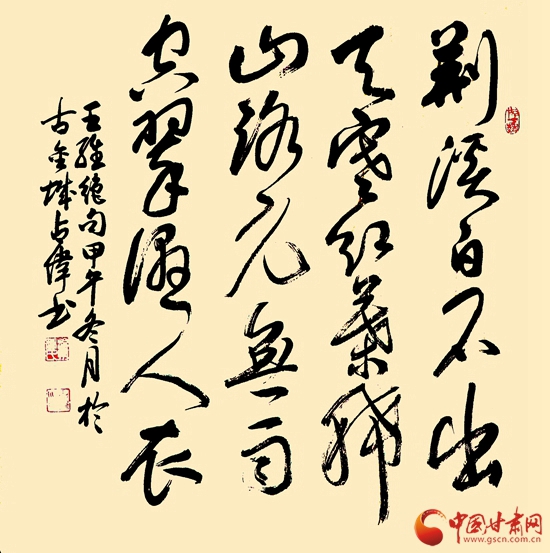 荊溪白石出
天寒紅葉稀
山路元無雨
空翠濕人衣
王維絕句甲午冬月於
古金城占偉书
中国甘肃网
www.gscn.com.cn